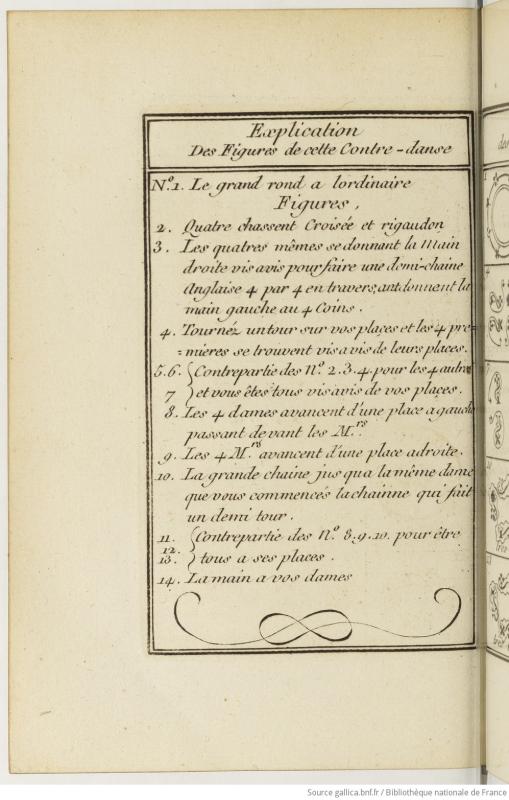 Explication
Des Figures de cette Contre-danse
N.º1. Le grand rond a lordinaire
Figures,
2. Quatre chassent Croisée et rigaudon
3. Les quatres mêmes se donnant la Main
droite vis avis pour faire une demi-chaine
Anglaise 4 par 4 en travers, donnent la
main gauche au 4 Coins.
4. Tournéz un tour sur vos places et les 4 pre=
=mieres se trouvent vis a vis de leurs places.
5.6. Contrepartie des N.º 2.3.4. pour les 4 autres
7 et vous êtes tous vis avis de vos places.
8. Les 4 dames avancent d'une place a gauche
passant devant les M.rs
9. Les 4 M.rs avancent d'une place adroite.
10. La grande chaine jusqua la même dame
que vous commencés la chainne qui fait
un demi tour.
11. Contrepartie des N.º 8.9.10. pour être
12.
13. tous a ses places.
14. La main a vos dames
Source gallica.bnf.fr / Bibliothèque nationale de France